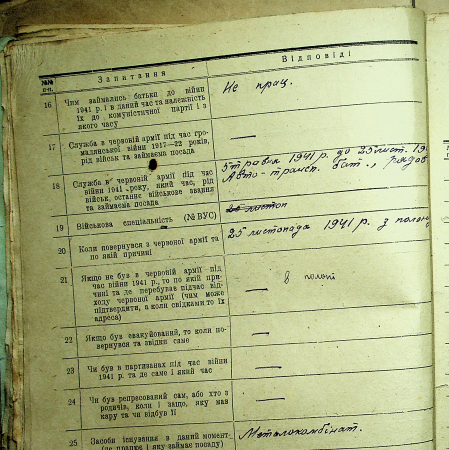 №№
п-п.
Запитання
Відповіді
16
Чим займались батьки до війни
1941 р. і в даний час та належність
їх до комуністичної партії і з
якого часу
Не прац.
17
Служба в червоній армії під час гро-
мадянської війни 1917—22 років,
рід військ та займаєма посада
—
18
Служба в червоній армії під час
війни 1941 року, який час, рід
військ, останнє військове звання
та займаєма посада
5 травня 1941 р. до 25 лист. 19
Авто-трансп. бат., рядов
19
Військова спеціяльність (№ ВУС)
20
Коли повернувся з червоної армії та
по якій причині
25 листопада 1941 р. з полону
21
Якщо не був в червоній армії під
час війни 1941 р., то по якій при-
чині та де перебував підчас від-
ходу червоної армії (чим може
підтвердити, а коли свідками то їх
адреса)
В полоні
22
Якщо був евакуйований, то коли по-
вернувся та звідки саме
—
23
Чи був в партизанах під час війни
1941 р. та де саме і який час
—
24
Чи був репресований сам, або хто з
родичів, коли і защо, яку мав
кару та чи відбув її
—
25
Засоби існування в даний момент
(де працює і яку займає посаду)
Металокомбінат.